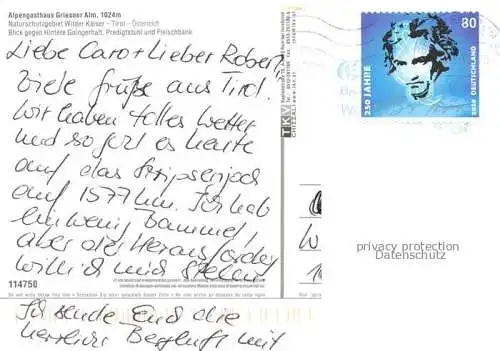 Alpengasthaus Griesner Alm, 1024m
Naturschutzgebiet Wilder Kaiser – Tirol – Österreich
Blick gegen Hintere Goingerhalt, Predigtstuhl und Fleischbank
Liebe Caro + Lieber Robert!
Viele Grüße aus Tirol.
Wir haben tolles Wetter
und so geht es heute
auf das Stripsenjoch
auf 1577 hm. Ich hab
ein wenig Bammel,
aber der Herausforder
will ich mich stellen
114750
Ich sende Euch die
herrliche Bergluft mit
TKV
80
250 JAHRE
2020 DEUTSCHLAND
privacy protection
Datenschutz